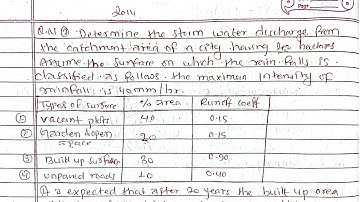 2014
Q.N ③ Determine the storm water discharge from
the catchment area of a city having 200 hectares
Assume the surface on which the rain falls is
classified as follows the maximum intensity of
rainfall is 40mm/hr.
Types of surface % area Runoff coeff
① vacant plots 40 0.15
② Garden & open space 20 0.15
③ Built up surface 30 0.90
④ unpaved roads 10 0.40
It is expected that after 20 years the built up area